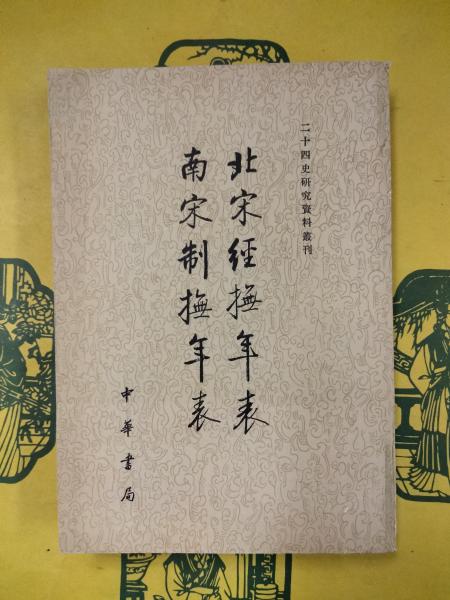 二十四史研究資料叢刊
北宋經撫年表
南宋制撫年表
中華書局